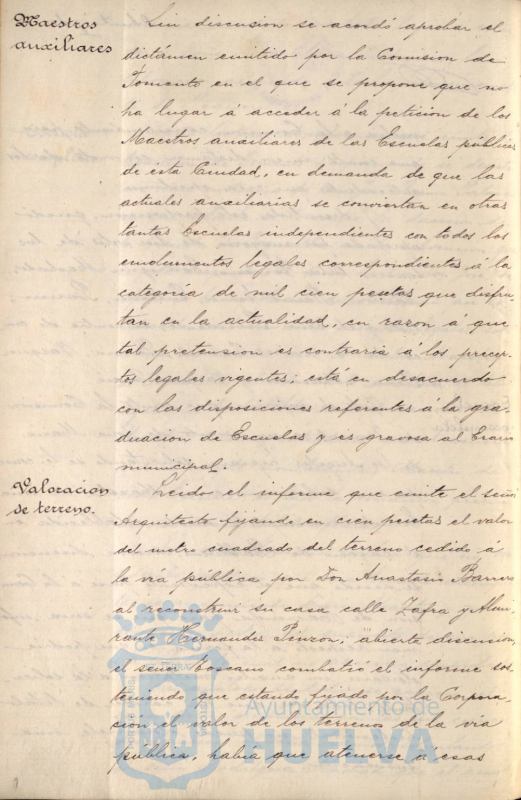 Maestros
auxiliares
Sin discusion se acordó aprobar el
dictámen emitido por la Comision de
Fomento en el que se propone que no
ha lugar á acceder á la peticion de los
Maestros auxiliares de las Escuelas públicas
de esta Ciudad, en demanda de que las
actuales auxiliarias se conviertan en otras
tantas Escuelas independientes con todos los
emolumentos legales correspondientes á la
categoría de mil cien pesetas que disfru
tan en la actualidad, en razon á que
tal pretension es contraria á los precep-
tos legales vigentes; está en desacuerdo
con las disposiciones referentes á la gra-
duacion de Escuelas y es gravosa al Erario
municipal.
Valoracion
de terreno.
Leido el informe que emite el señor
Arquitecto fijando en cien pesetas el valor
del metro cuadrado del terreno cedido á
la via pública por Don Anastasio Barrero
al reconstruir su casa calle Zafra y Almi-
rante Hernandez Pinzon; abierta discusion,
el señor Toscano combatió el informe sos-
teniendo que estando fijado por la Corpora-
cion el valor de los terrenos de la via
pública, había que atenerse á esas
Ayuntamiento de
HUELVA